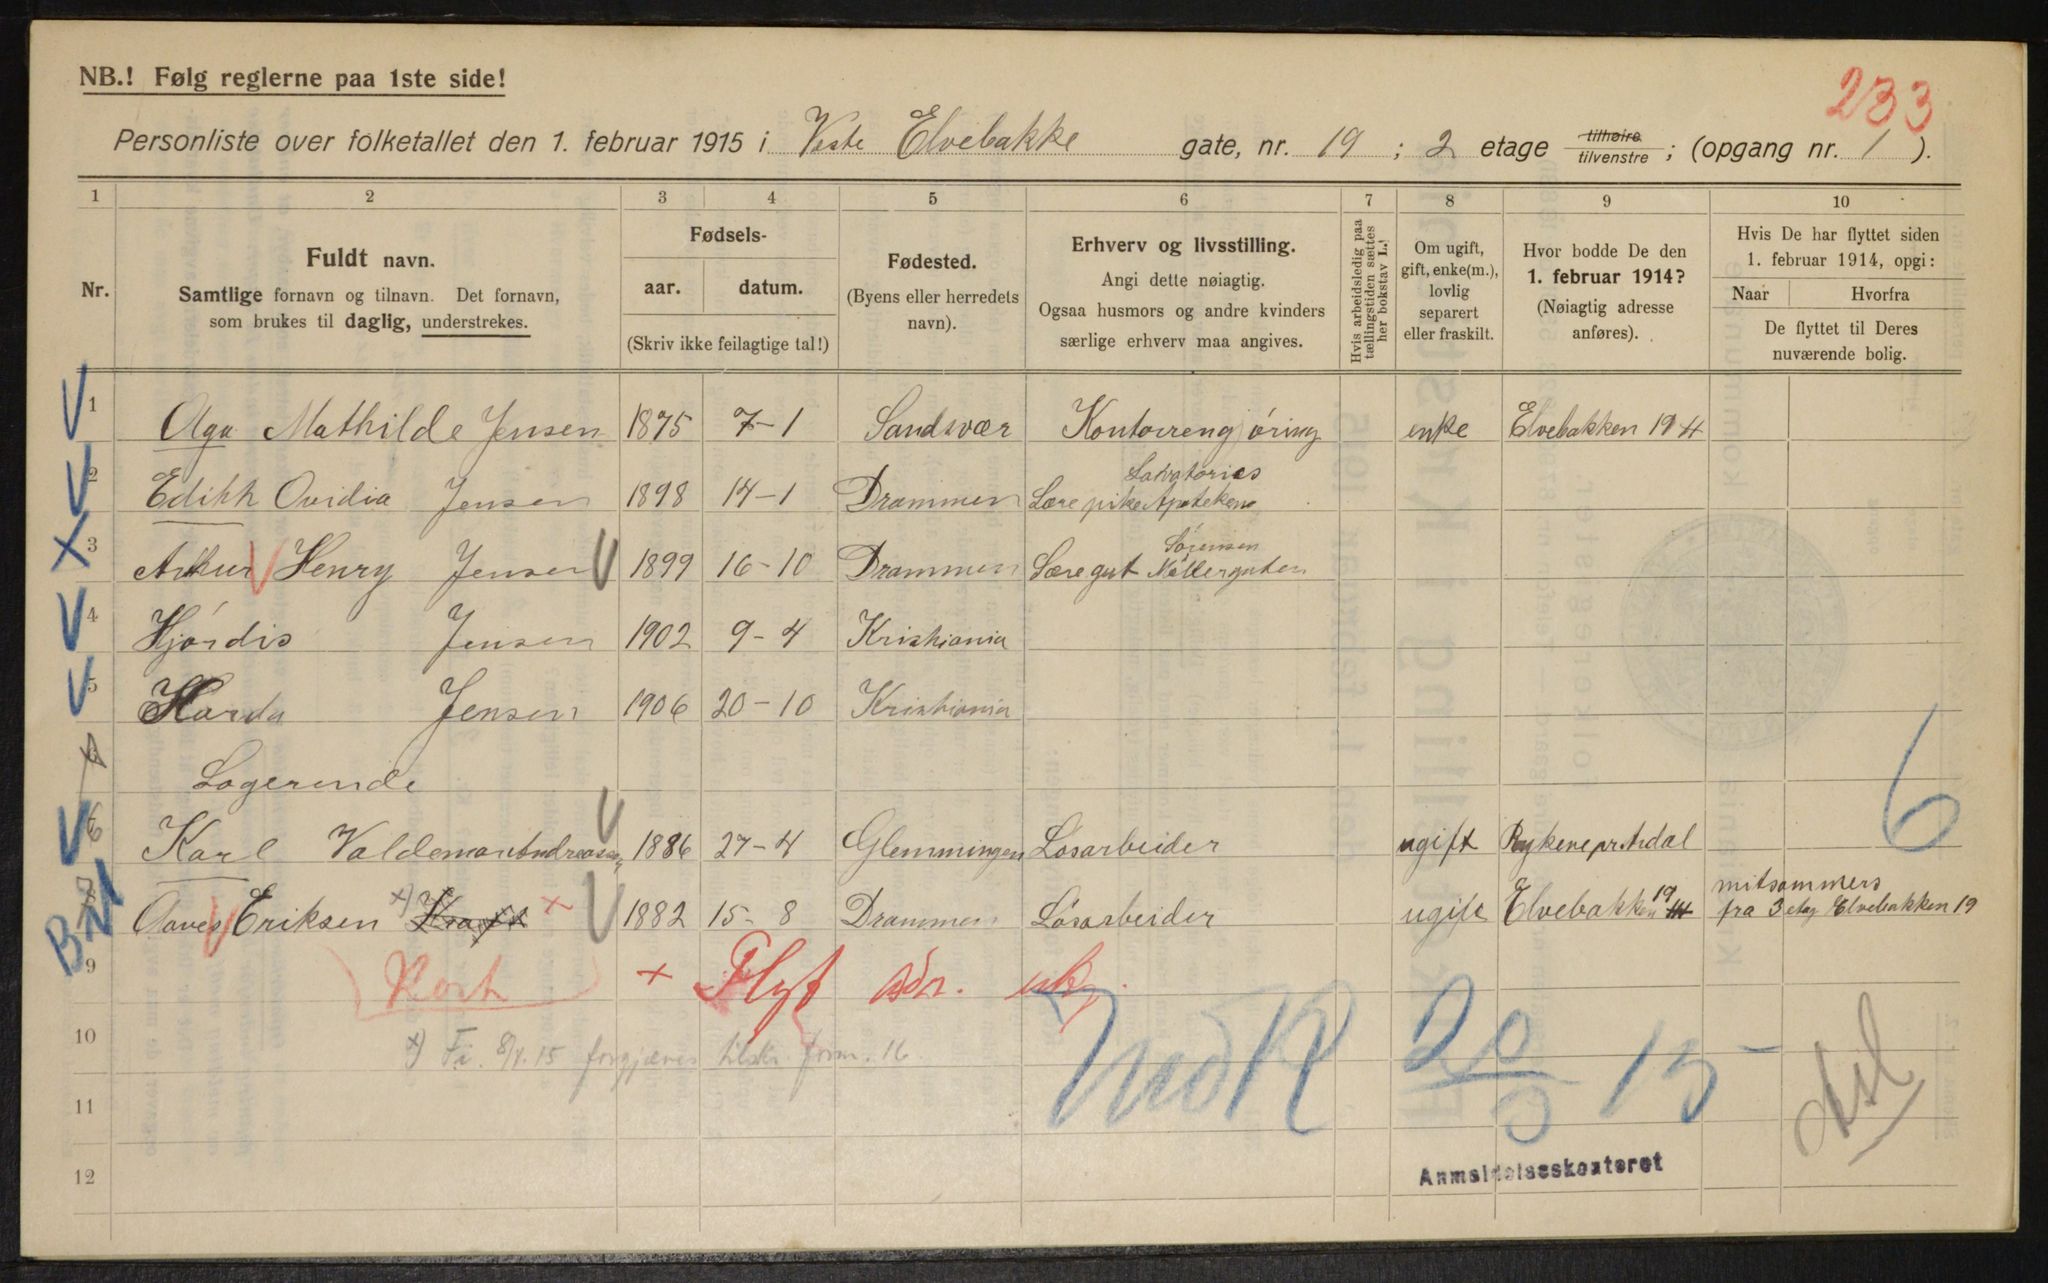 NB.! Følg reglerne paa 1ste side!
233
Personliste over folketallet den 1. februar 1915 i Vestr Elvebakke gate, nr. 19 ; 2 etage tilhøire tilvenstre ; (opgang nr. 1 ).
1 2 3 4 5 6 7 8 9 10
Nr.
Fuldt navn.
Samtlige fornavn og tilnavn. Det fornavn,
som brukes til daglig, understrekes.
Fødsels-
aar. datum.
(Skriv ikke feilagtige tal!)
Fødested.
(Byens eller herredets
navn).
Erhverv og livsstilling.
Angi dette nøiagtig.
Ogsaa husmors og andre kvinders
særlige erhverv maa angives.
Hvis arbeidsledig paa
tællingstiden sættes
her bokstav L.!
Om ugift,
gift, enke(m.),
lovlig
separert
eller fraskilt.
Hvor bodde De den
1. februar 1914?
(Nøiagtig adresse
anføres).
Hvis De har flyttet siden
1. februar 1914, opgi:
Naar Hvorfra
De flyttet til Deres
nuværende bolig.
1 Olga Mathilde Jensen 1875 7-1 Sandsvær Kontorrengjøring enke Elvebakken 19 4
2 Edith Ovidia Jensen 1898 14-1 Drammen Lærepike Apotekens Labratories
3 Arthur Henry Jensen 1899 16-10 Drammen Læregut Møllerguten Sørensen
4 Hjørdis Jensen 1902 9-4 Kristiania
5 Harda Jensen 1906 20-10 Kristiania
Logerende
6 Karl Valdemar Andreassen 1886 27-4 Glemmingen Løsarbeider ugift Rykene pr Ardal
Eriksen x) x 1882 15-8 Drammen Løsarbeider ugift Elvebakken 19 mitsommers
fra 3 etg Elvebakken 19
9 x Flyt adr. uk.
10 x) Fi. 8/4.15 forgjæves tilskr. form. 16.
6
11 15
12 Anmeldelseskontoret